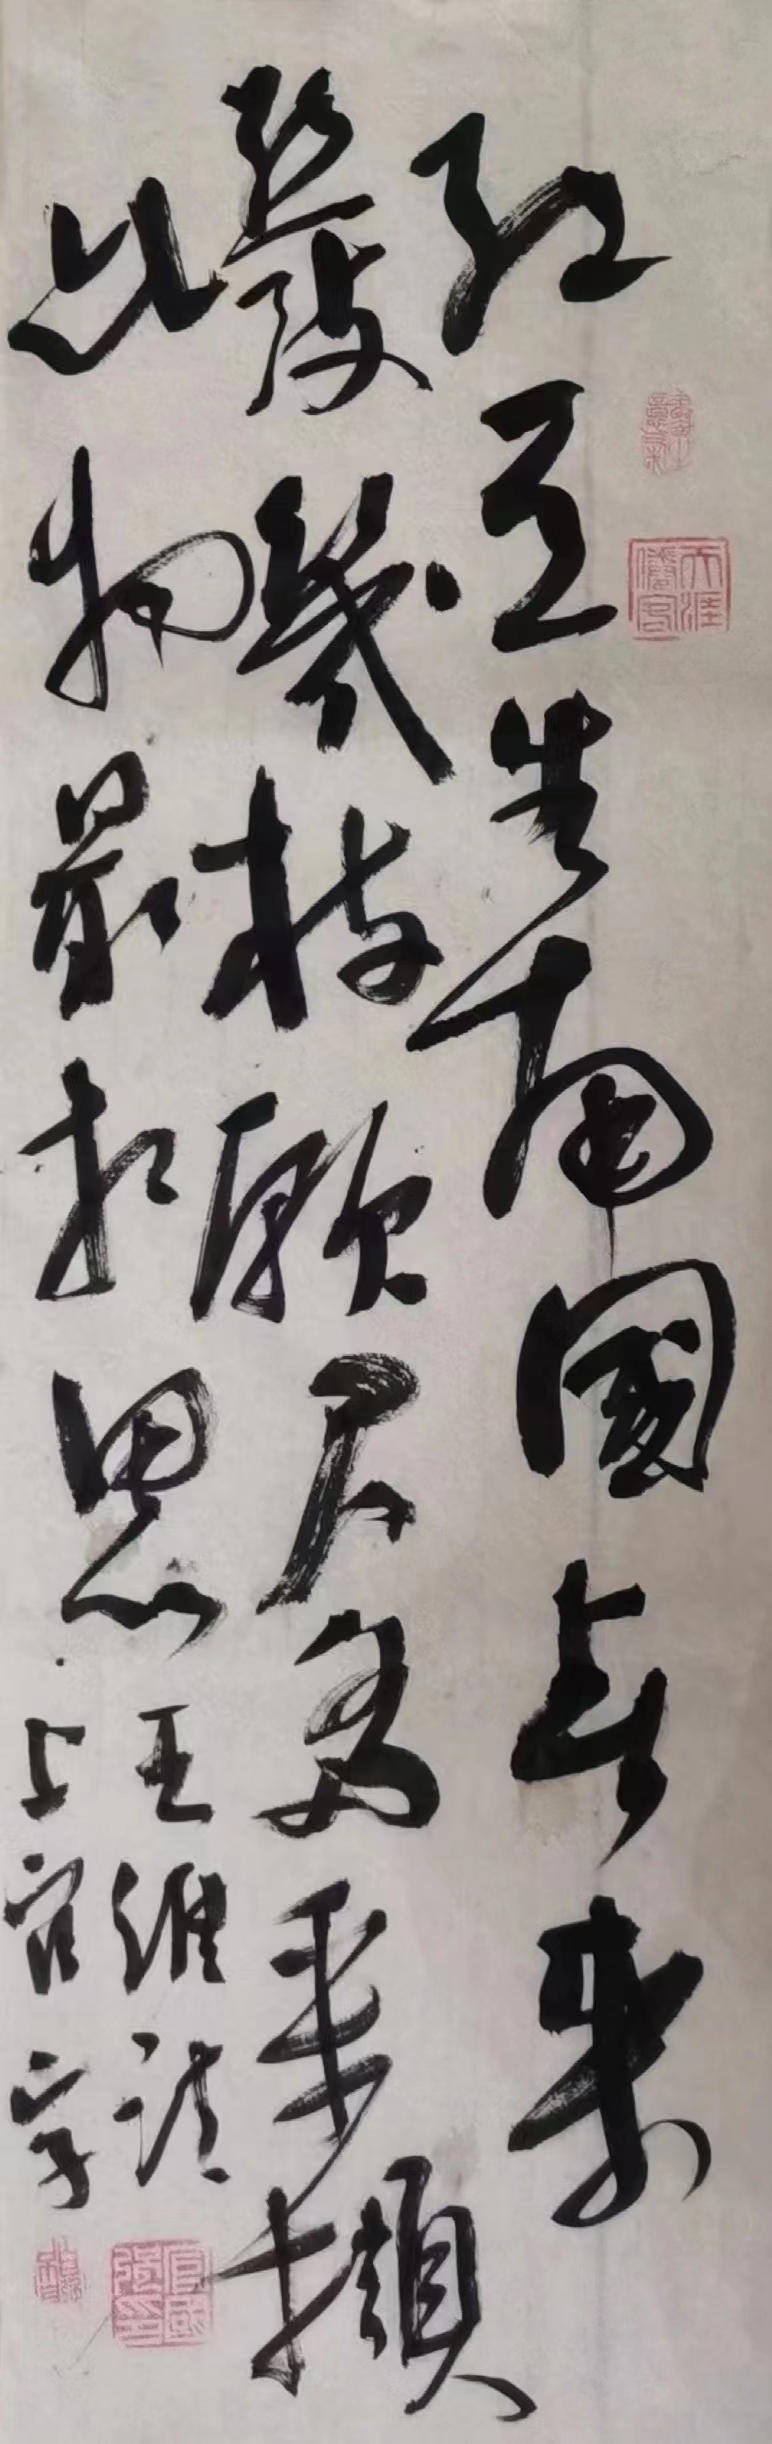 紅豆生南國春來
發幾枝願君多采擷
此物最相思
王維詩
上官
天涯